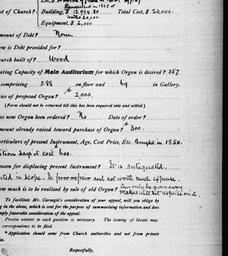 of Church? Building, $ 12,914.80 Total Cost, $ 22,000.
Equipment, $ 2,000
mount of Debt? None
is Debt provided for?
urch built of? Wood
ating Capacity of Main Auditorium for which Organ is desired? 357
comprising 288 on floor and 69 in Gallery.
rice of proposed Organ? $ 2000.
(Form should not be returned till this has been enquired into and settled.)
as new Organ been ordered? No Date of order?
mount already raised toward purchase of Organ? $ 300.
articulars of present Instrument, Age, Cost Price, Etc. Bought in 1850.
it cost 600.
eason for displacing present Instrument? It is antiquated.
ted in scope. In poor repair and not worth much expense.
ow much is to be realized by sale of old Organ? Can only be given away
Makers will not
To facilitate Mr. Carnegie's consideration of your appeal, will you oblige by
ng to the above, which is sent for purpose of summarizing information and does
mply favorable consideration of the appeal.
Precise answer to each question is necessary. The leaving of blanks may
correspondence to be ignored.
Application should come from Church authorities and not from private
Respectfully,